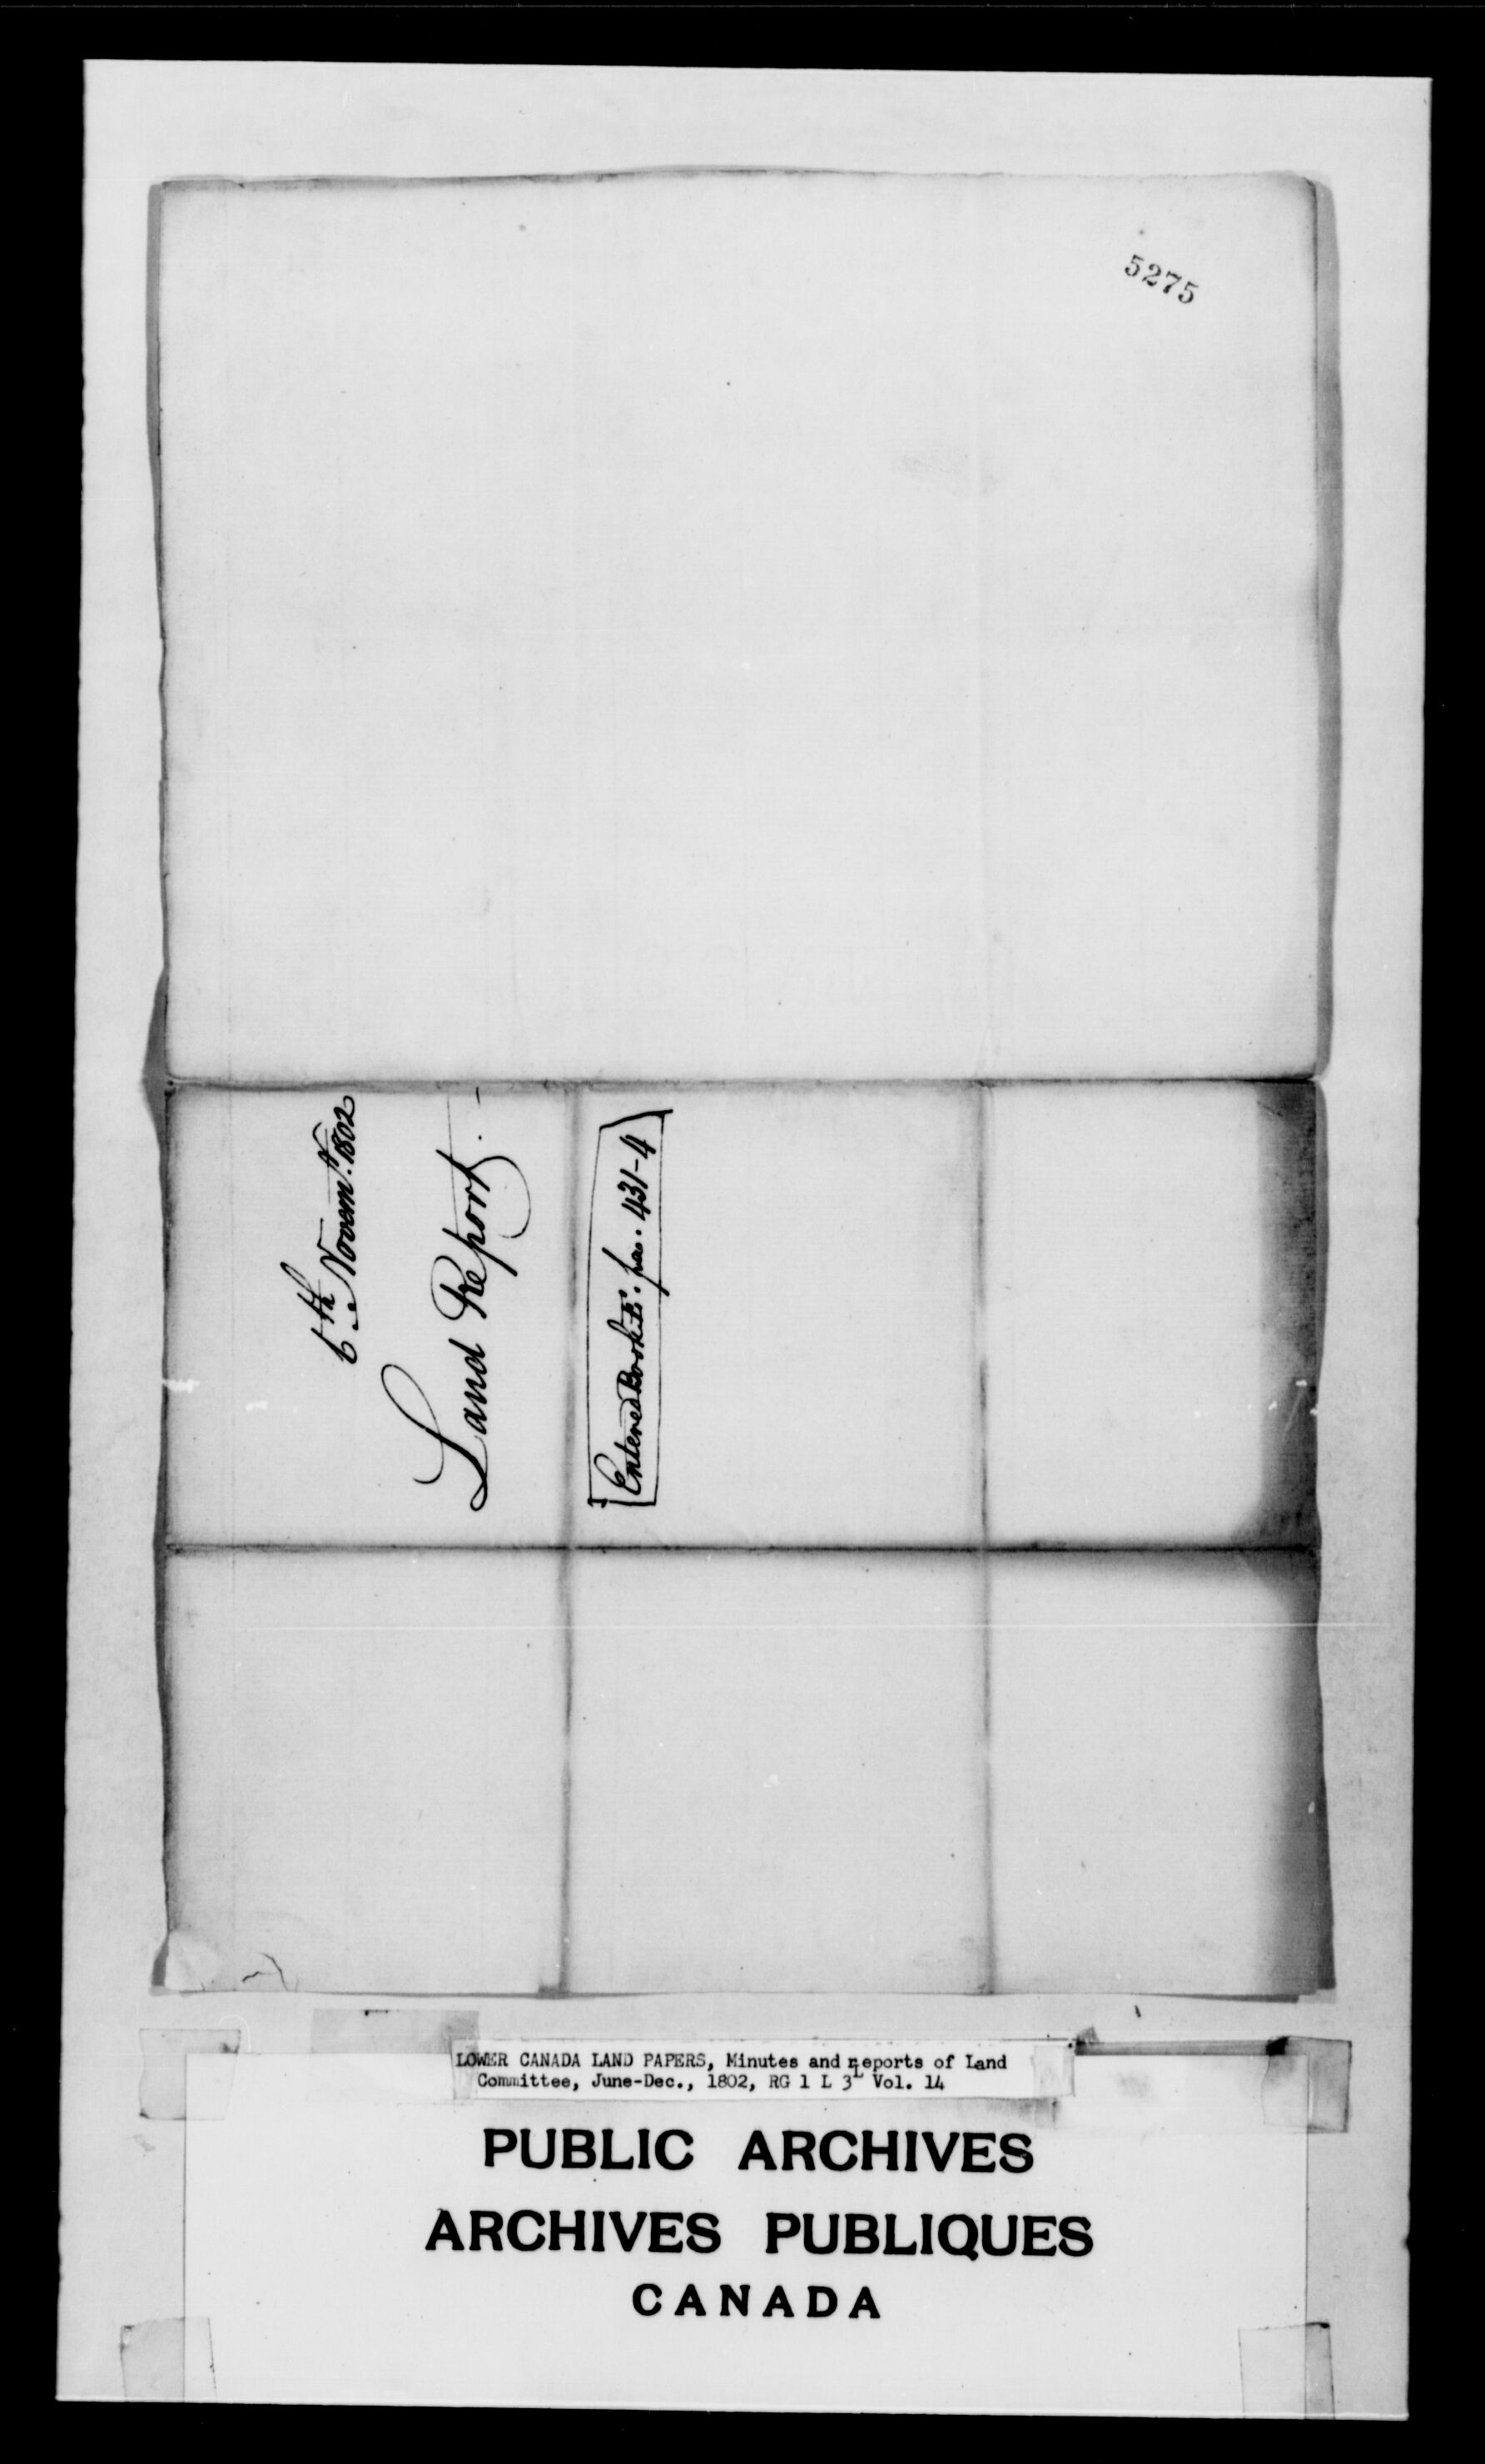 5275
6th Novemr. 1802
Land Report. -
Entered Book E. pa. 431-4
LOWER CANADA LAND PAPERS, Minutes and Reports of Land
Committee, June-Dec., 1802, RG 1 L 3L Vol. 14
PUBLIC ARCHIVES
ARCHIVES PUBLIQUES
CANADA